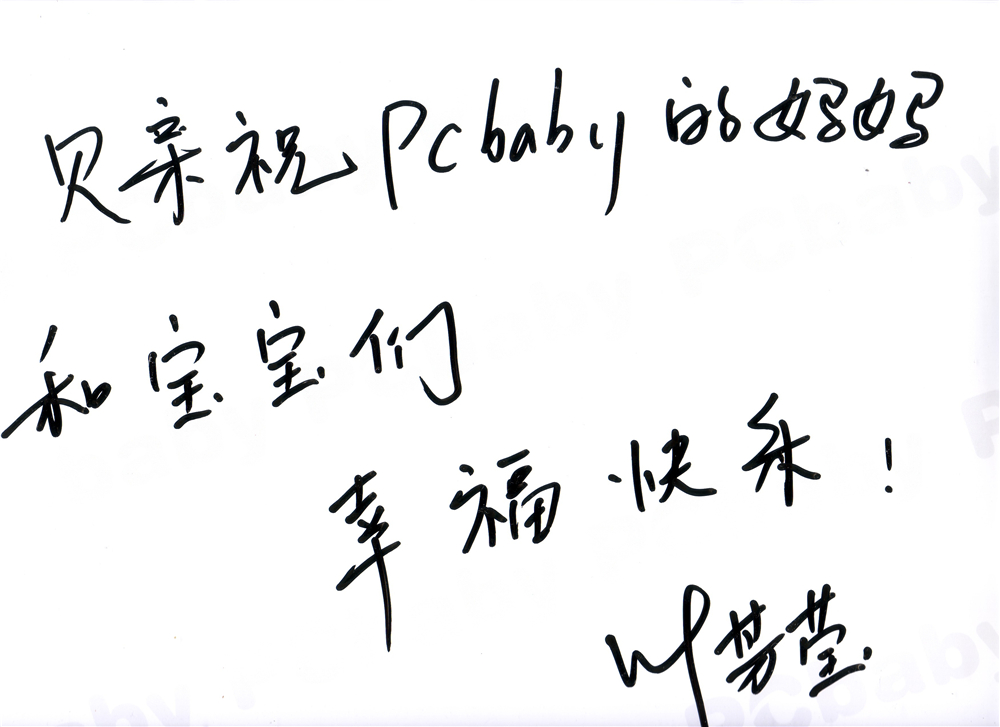 贝亲祝Pcbaby的妈妈
和宝宝们
幸福快乐!
叶芳莹
PCbaby